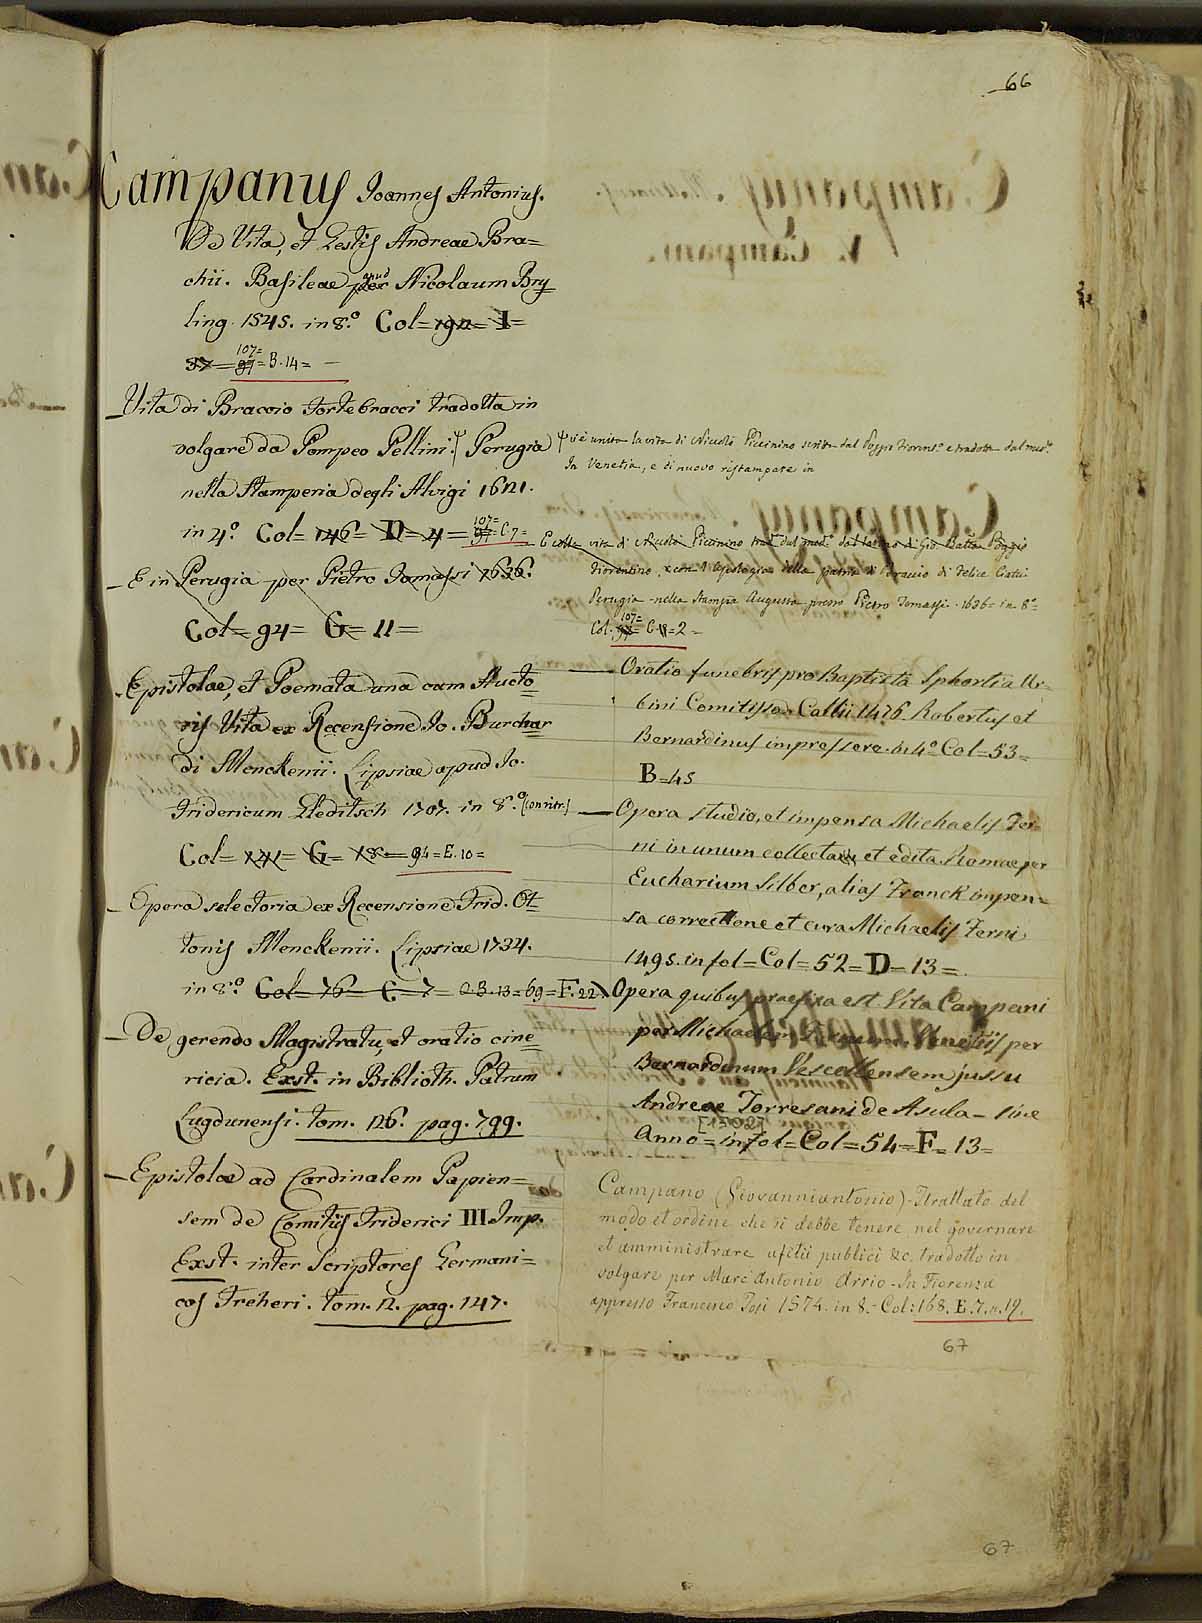 66
Campanus Joannes Antonius.
De Vita, et Gestis Andreae Bra=
chii. Basileae per apud Nicolaum Bry
ling. 1545. in 8.° Col= 192= I=
37= 97 107= B. 14=
Vita di Braccio Fortebracci tradotta in
volgare da Pompeo Pellini. Perugia
nella Stamperia degli Alvigi 1621.
in 4.° Col= 146= D= 4= 97 107= C 7=
E in Perugia per Pietro Tomassi 1636.
Col= 94= G= 11=
Epistolae, et Poemata una cum Aucto
ris Vita ex Recensione Jo. Burchar
di Menckenii. Lipsiae apud Jo.
Fridericum Gleditsch 1707. in 8.° (con ritr.)
Col= 141= G= 18= 94= E. 10=
Opera selectoria ex Recensione Frid. Ot
tonis Menckenii. Lipsiae 1734.
in 8.° Col= 76= C= 7= 2. B. 13= 69= F. 22
De gerendo Magistratu, et oratio cine
ricia. Exst. in Biblioth. Patrum
Lugdunensi. tom. 26. pag. 799.
Epistolae ad Cardinalem Papien=
sem de Comitiis Friderici III Imp.
Exst. inter Scriptores Germani=
cos Freheri. tom. 2. pag. 147.
vi è unita la vita di Niccolò Piccinino scritta dal Poggio Fiorent.° e tradotta dal med.°
In Venetia, e di nuovo ristampate in
E colla vita di Niccolò Piccinino trad.a dal med.° dal latino di Gio. Batta Poggio
Fiorentino, e con l'Apologia della patria di Braccio di Felice Ciatti
Perugia nella Stampa Augusta presso Pietro Tomassi. 1636= in 8.°
Col. 97= 107= C. 11= 2=
Oratio funebris pro Baptista Sphortia Ur=
bini Comitissa. Callii 1476. Robertus et
Bernardinus impressere. in 4.° Col= 53=
B= 45
Opera studio, et impensa Michaelis Fer=
ni in unum collecta et edita. Romae per
Eucharium Silber, alias Franck impen=
sa correctione et cura Michaelis Ferni
1495. in fol= Col= 52= D= 13=
Opera quibus praefixa est Vita Campani
per Michaelem Fernum. Venetiis per
Bernardinum Vercellensem jussu
Andreae Torresani de Asula – sine
Anno= in fol= Col= 54= F= 13=
Campano (Giovanniantonio) - Trattato del
modo et ordine che si debbe tenere nel governare
et amministrare ufitii publici &c, tradotto in
volgare per Marc'Antonio Arrio - In Fiorenza
appresso Francesco Tosi 1574. in 8.- Col: 168. E. 7. n. 19.
67
67